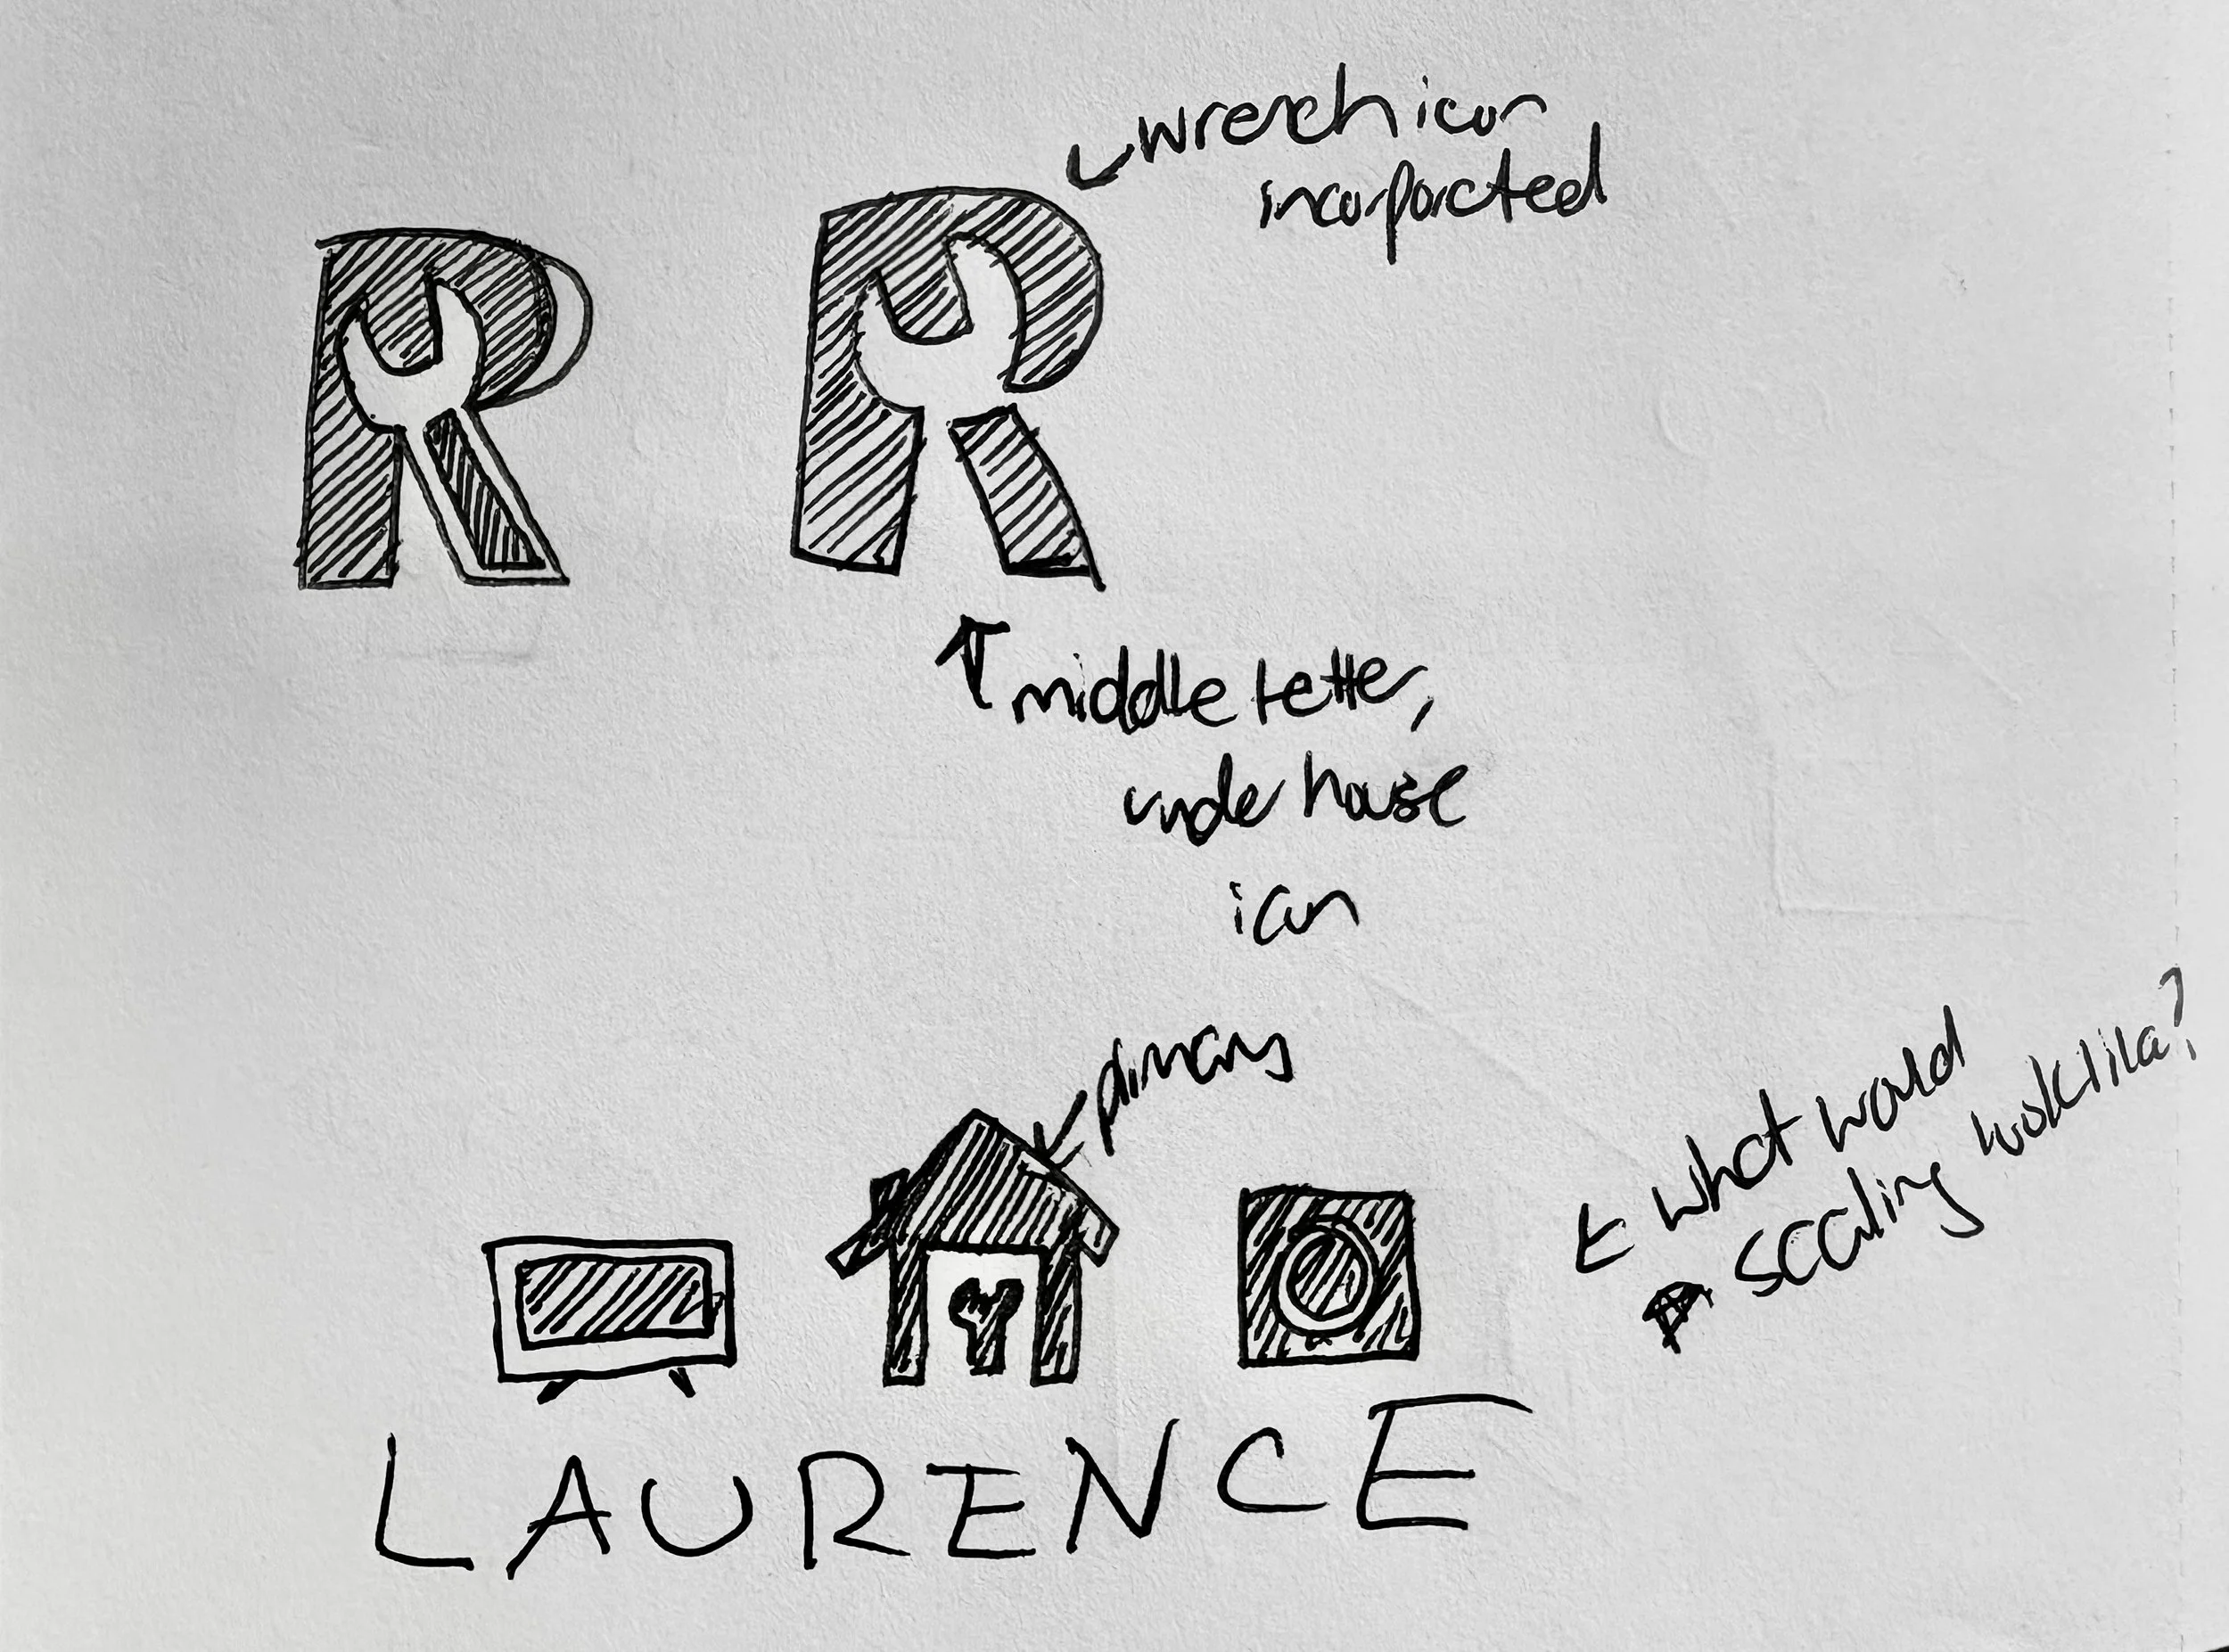 R R
wrench icon
incorporcteed
middle letter,
under house
icon
primary
what would
scaling look like?
LAURENCE